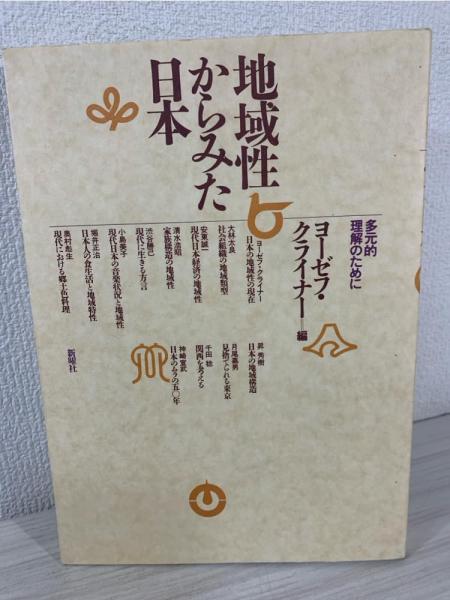 地域性
からみた
日本
多元的
理解のために
ヨーゼフ・
クライナー 編
ヨーゼフ・クライナー
日本の地域性の現在
大林太良
社会組織の地域類型
安東誠一
現代日本経済の地域性
清水浩昭
家族構造の地域性
渋谷勝己
現代に生きる方言
小島美子
現代日本の音楽状況と地域性
堀井正治
日本人の食生活と地域特性
奥村彪生
現代における郷土色料理
昇 秀樹
日本の地域構造
月尾嘉男
見捨てられる東京
千田 稔
関西を考える
神崎宣武
日本のムラの五〇年
新曜社